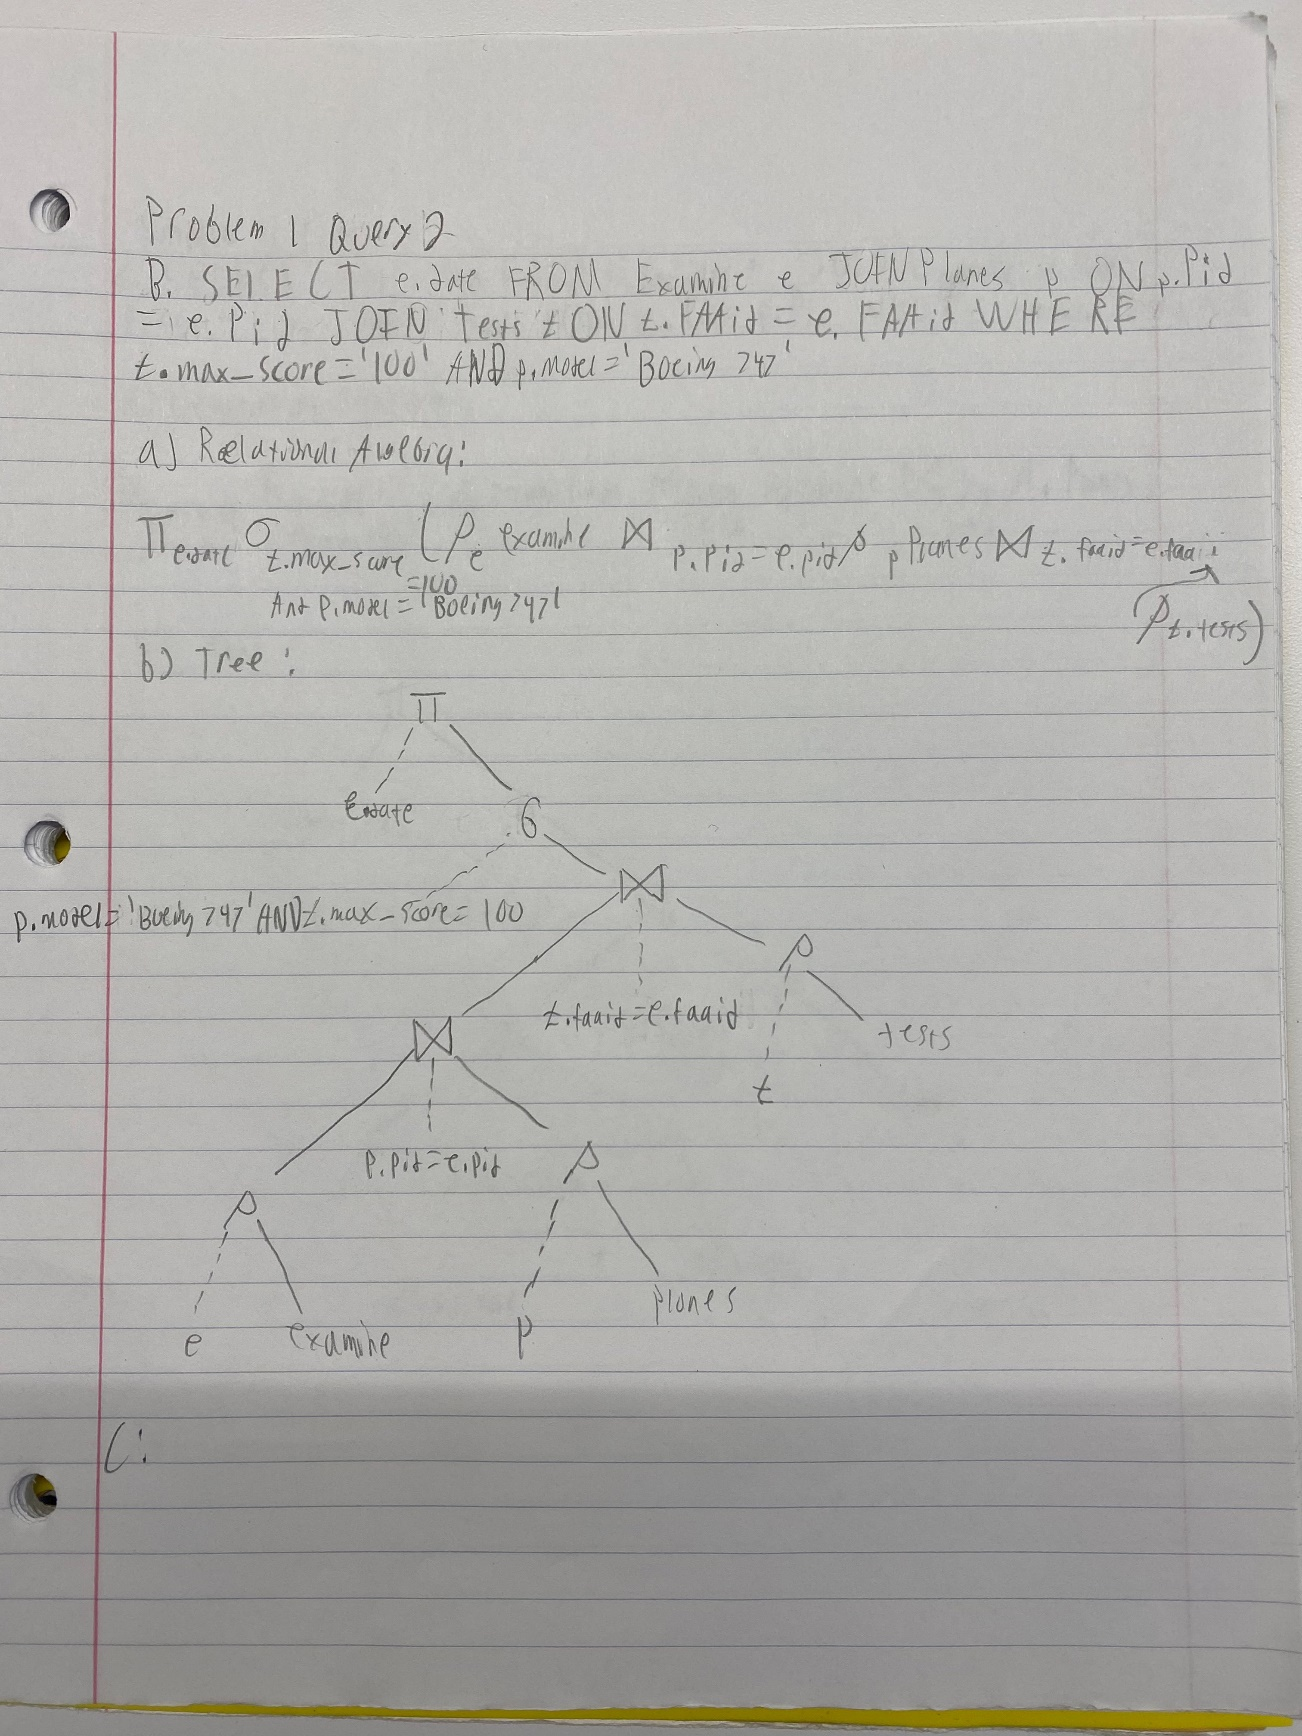 Problem 1 Query 2
B. SELECT e.date FROM Examine e JOIN Planes p ON p.Pid
= e.Pid JOIN Tests t ON t.FAAid = e.FAAid WHERE
t.max_score = '100' AND p.model = 'Boeing 747'
a) Relational Algebra:
Π e.date σ t.max_score (ρ e examine ⋈ p.pid = e.pid ρ p Planes ⋈ t.faaid = e.faaid
=100
And p.model = 'Boeing 747'
ρ t. tests)
b) Tree:
Π
e.date
σ
⋈
p.model = 'Boeing 747' AND t.max_score = 100
ρ
t.faaid = e.faaid
⋈
tests
t
p.pid = e.pid
ρ
ρ
planes
e
examine
p
C: